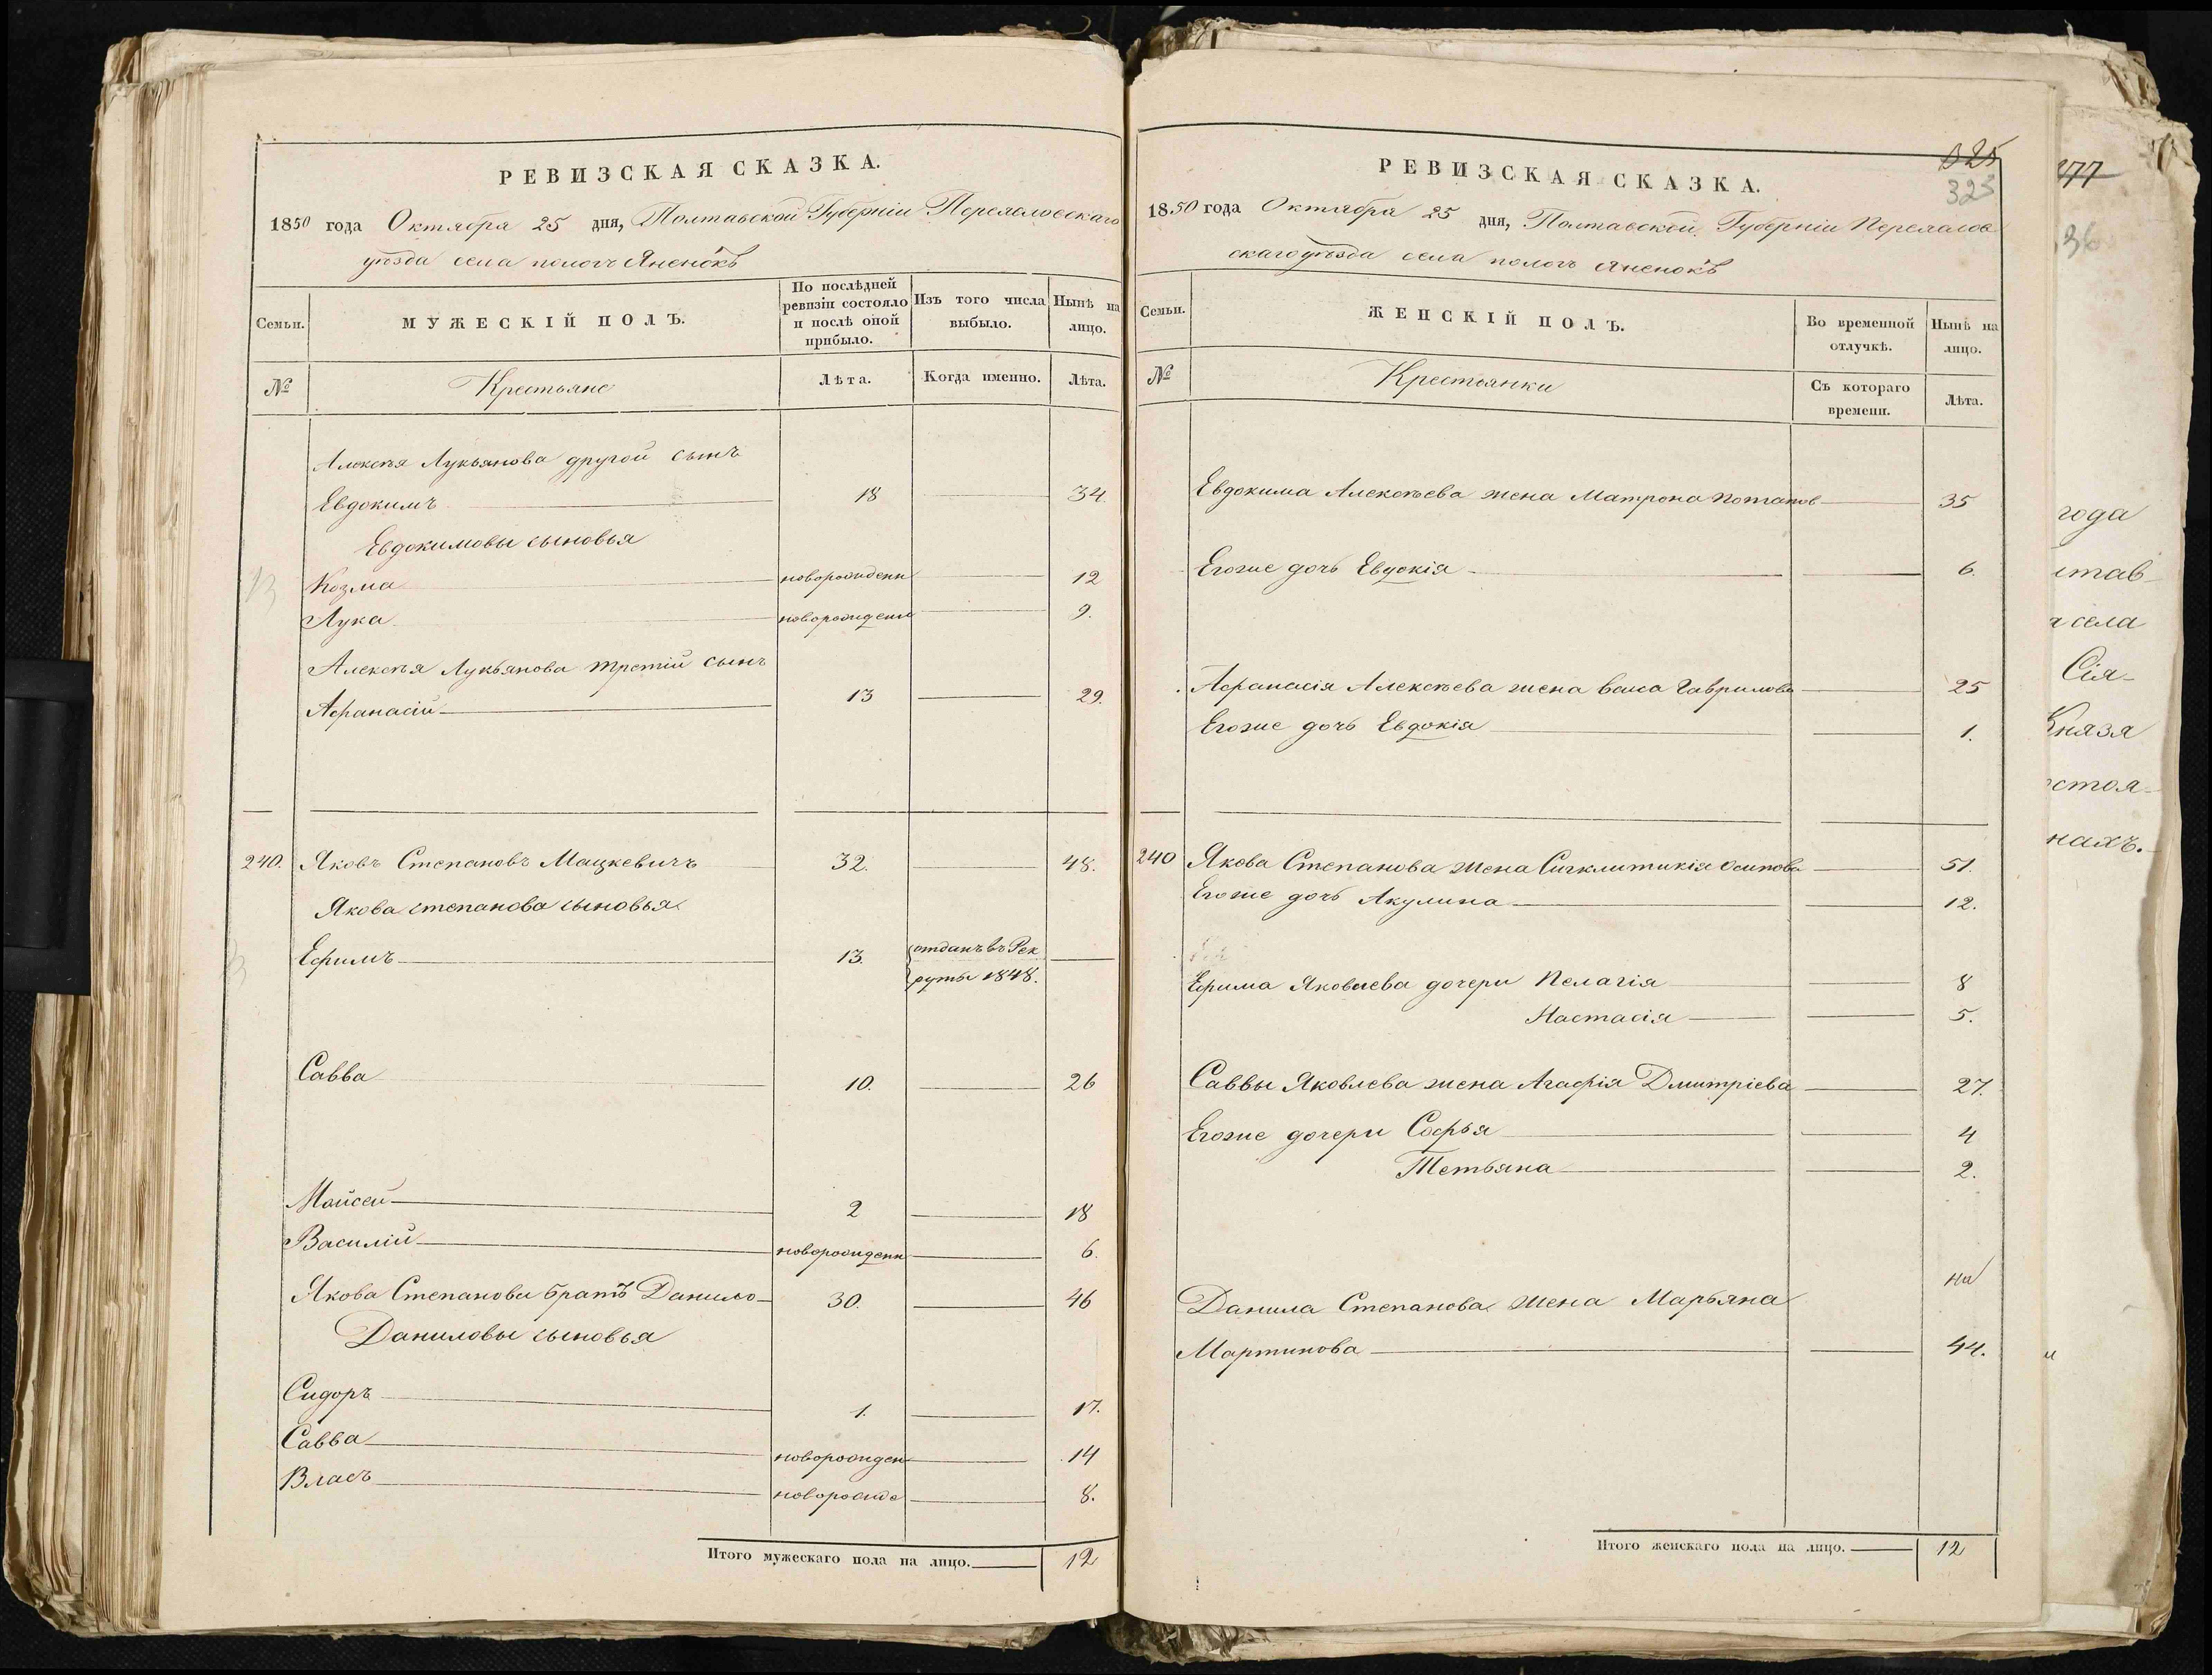 РЕВИЗСКАЯ СКАЗКА.
1850 года Октября 25 дня, Полтавской Губерніи Переяславскаго
уѣзда села пологъ Яненокъ
Семьи.
МУЖЕСКІЙ ПОЛЪ.
По послѣдней
ревизіи состояло
и послѣ оной
прибыло.
Изъ того числа
выбыло.
Нынѣ на
лицо.
№
Крестьяне
Лѣта.
Когда именно.
Лѣта.
Алексѣя Лукьянова другой сынъ
Евдокимъ 18 34.
Евдокимовы сыновья
Козма новорожденн 12
Лука новорожден 9.
Алексѣя Лукьянова третій сынъ
Афанасій 13 29.
240. Яковъ Степановъ Мацкевичъ 32. 48.
Якова степанова сыновья
Ефимъ 13. отданъ въ Рек
руты 1848.
Савва 10. 26
Мойсей 2 18
Василій новорожденн 6.
Якова Степанова братъ Данило 30. 46
Даниловы сыновья
Сидоръ 1. 17.
Савва новорожден 14
Власъ новорожде 8.
Итого мужескаго пола на лицо. 12
325
323
РЕВИЗСКАЯ СКАЗКА.
1850 года Октября 25 дня, Полтавской Губерніи Переяслов
скаго уѣзда села пологъ Яненокъ
Семьи.
ЖЕНСКІЙ ПОЛЪ.
Во временной
отлучкѣ.
Нынѣ на
лицо.
№
Крестьянки
Съ котораго
времени.
Лѣта.
Евдокима Алексѣева жена Матрона Потапов 35
Егоже дочь Евдокія 6.
Афанасія Алексѣева жена Васса Гаврилова 25
Егоже дочь Евдокія 1.
240 Якова Степанова жена Сигклитикія Осипова 51.
Егоже дочь Акулина 12.
Ефима Яковлева дочери Пелагія 8
Настасія 5.
Саввы Яковлева жена Агафія Дмитріева 27.
Егоже дочери Софья 4
Тетьяна 2.
Данила Степанова жена Марьяна
Мартинова 44.
Итого женскаго пола на лицо. 12
277
36
года
тав
села
Сія
Князя
стоя
нахъ.